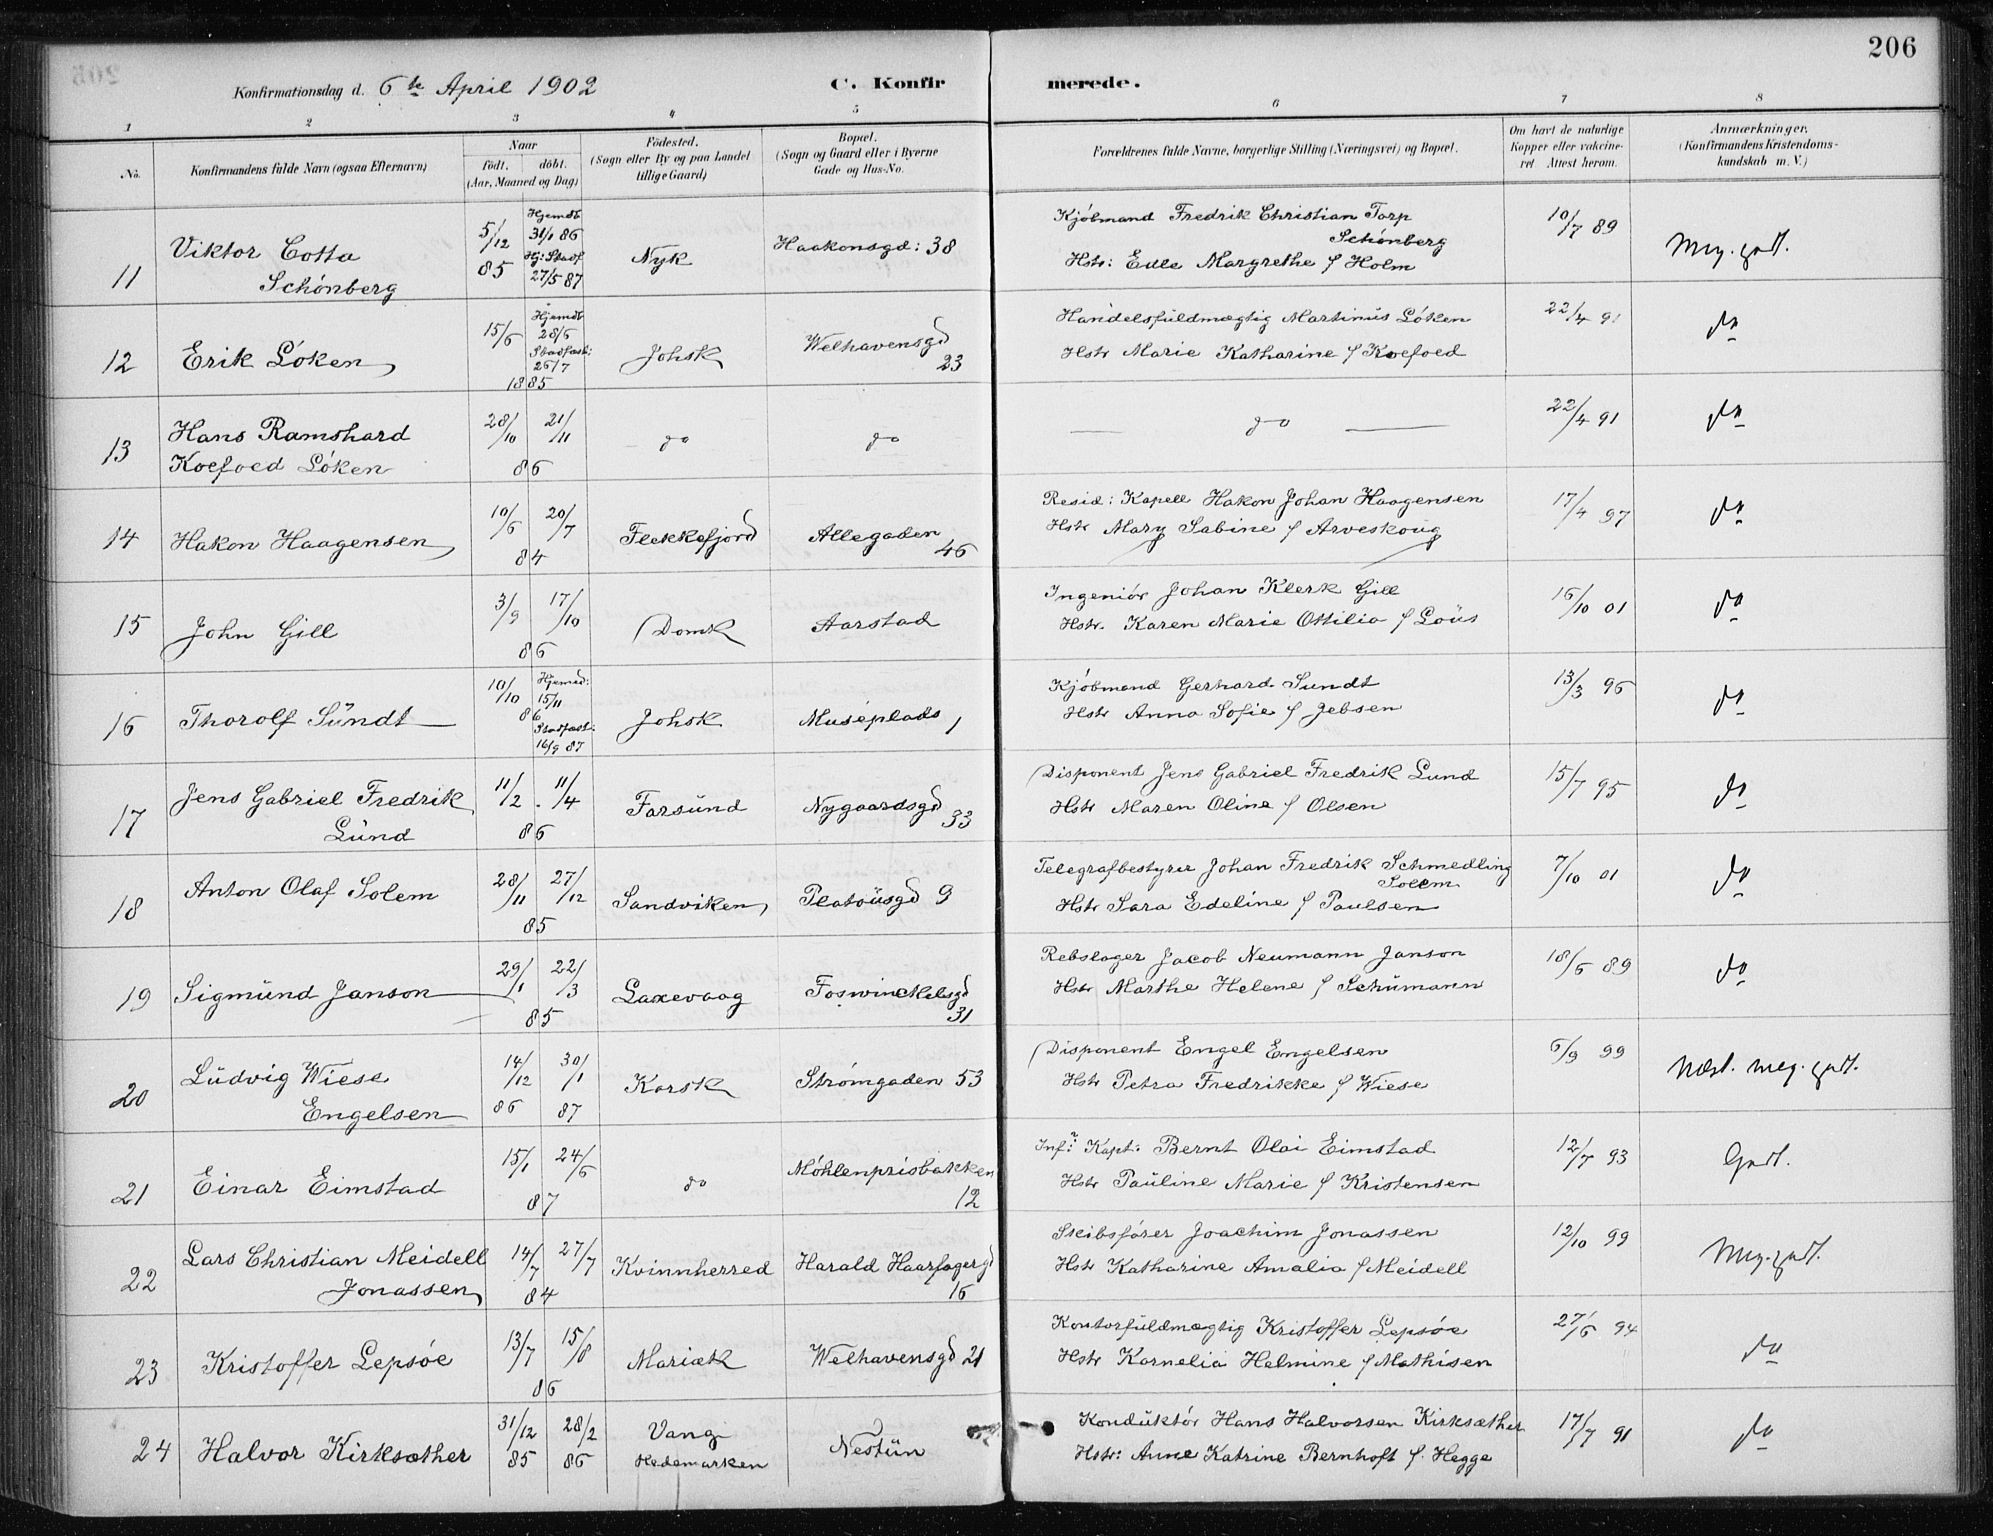 206
Konfirmationsdag d. 6te April 1902
C. Konfirmerede.
1 2 3 4 5 6 7 8
No.
Konfirmandens fulde Navn (ogsaa Efternavn)
Naar
födt. döbt.
(Aar, Maaned og Dag)
Födested.
(Sogn eller By og paa Landet
tillige Gaard)
Bopæl.
(Sogn og Gaard eller i Byerne
Gade og Hus-No.
Forældrenes fulde Navne, borgerlige Stilling (Næringsvei) og Bopæl.
Om havt de naturlige
Kopper eller vakcine-
ret Attest herom.
Anmærkninger.
(Konfirmandens Kristendoms-
kundskab m. V.)
11 Viktor Cotta Schönberg 5/12 85 Hjemdt 31/1 86 Kj: Stadf 27/5 87 Nyk Haakonsgd: 38
Kjöbmand Fredrik Christian Torp Schönberg
Hstr: Edle Margrethe f Holm 10/7 89 Meg. godt.
12 Erik Löken 15/6 Hjemdt 28/6 Stadfæst: 26/7 1885 Johsk Welhavensgd 23
Handelsfuldmægtig Martinus Löken
Hstr Marie Katharine f Koefoed 22/4 91 do
13 Hans Ramshard Koefoed Löken 28/10 21/11 86 do do
do 22/4 91 do
14 Hakon Haagensen 10/6 20/7 84 Flekkefjord Allegaden 46
Resid: Kapell Hakon Johan Haagensen
Hstr Mary Sabine f Arveskoug 17/4 97 do
15 John Gill 3/9 17/10 86 Domk Aarstad
Ingeniör Johan Klerk Gill
Hstr. Karen Marie Ottilia f Löus 16/10 01 do
16 Thorolf Sundt 10/10 86 Hjemmd: 15/11 Stadfæst: 16/9 87 Johsk Muséplads 1
Kjöbmand Gerhard Sundt
Hstr Anna Sofie f Jebsen 13/3 96 do
17 Jens Gabriel Fredrik Lund 11/2 11/4 86 Farsund Nygaardsgd 33
Disponent Jens Gabriel Fredrik Lund
Hstr Maren Oline f Olsen 15/7 95 do
18 Anton Olaf Solem 28/11 27/12 85 Sandviken Platousgd 9
Telegrafbestyrer Johan Fredrik Schmedling Solem
Hstr Sara Edeline f Paulsen 7/10 01 do
19 Sigmund Janson 29/1 22/3 85 Laxevaag Foswinckelsgd 31
Rebslager Jacob Neumann Janson
Hstr Marthe Helene f Schumann 18/6 89 do
20 Ludvig Wiese Engelsen 14/12 86 30/1 87 Korsk Strömgaden 53
Disponent Engel Engelsen
Hstr Petra Fredrikke f Wiese 6/9 99 Næst. meg. godt.
21 Einar Eimstad 15/1 24/6 87 do Möhlenprisbakken 12
Inf: Kapt. Bernt Olai Eimstad
Hstr Pauline Marie f Kristensen 12/7 93 Godt.
22 Lars Christian Meidell Jonassen 14/7 27/7 84 Kvinnherred Harald Haarfagergd 16
Skibsförer Joachim Jonassen
Hstr Katharine Amalia f Meidell 12/10 99 Meg. godt.
23 Kristoffer Lepsöe 13/7 15/8 86 Mariæk Welhavensgd 21
Kontorfuldmægtig Kristoffer Lepsöe
Hstr Kornelia Helmine f Mathisen 27/6 94 do
24 Halvor Kirksæther 31/12 85 28/2 86 Vang Hedemarken Nestun
Konduktör Hans Halvorsen Kirksæther
Hstr: Anne Katrine Bernhoft f. Hegge 17/7 91 do